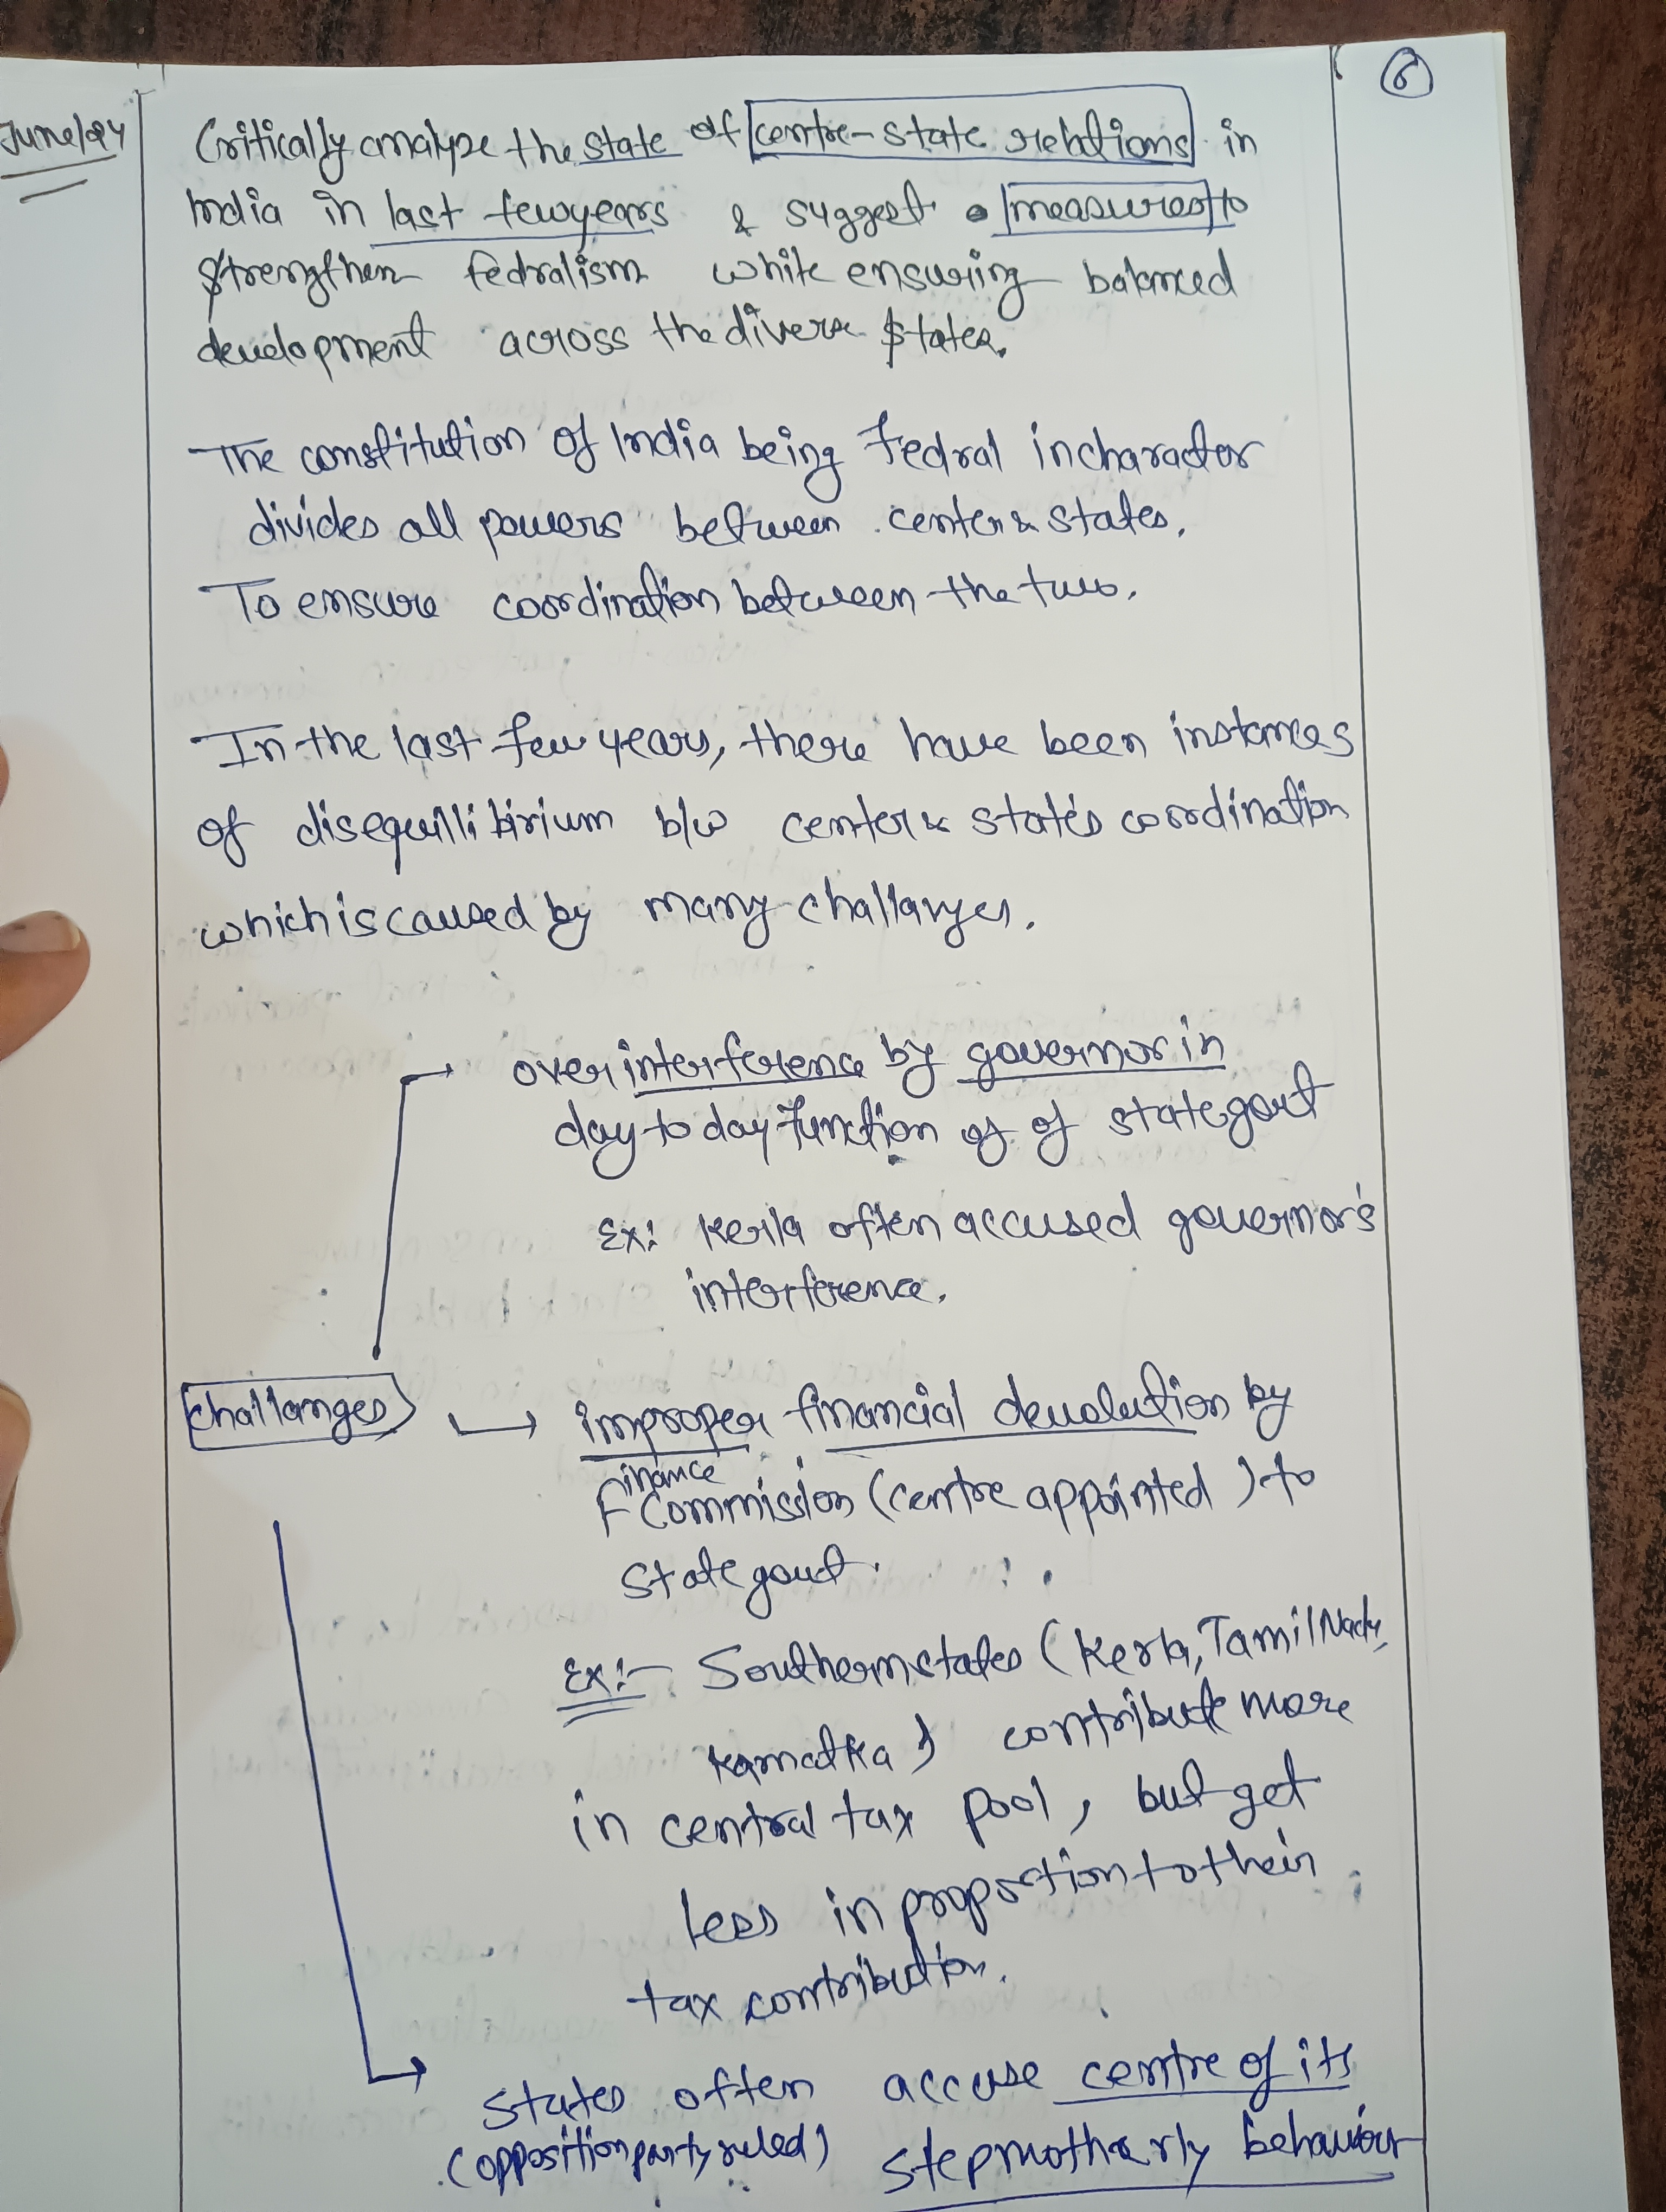 6
June/24
Critically analyze the state of centre-state relations in
India in last few years & suggest measures to
strengthen fedralism while ensuring balanced
development across the diverse states.
The constitution of India being Fedral in character
divides all powers between center & states.
To ensure coordination between the two.
In the last few years, there have been instances
of disequillibirium b/w center & state's coordination
which is caused by many challanges.
over interference by governor in
day to day function of of state govt
Ex: Kerla often accused governor's
interference.
Challanges
improper financial devolution by
Finance
Commission (centre appointed) to
state govt.
Ex:- Southern states (Kerla, Tamil Nadu,
Karnatka) contribute more
in central tax pool, but get
less in proportion to their
tax contribution.
States often accuse centre of its
(opposition party ruled) stepmotherly behaviour